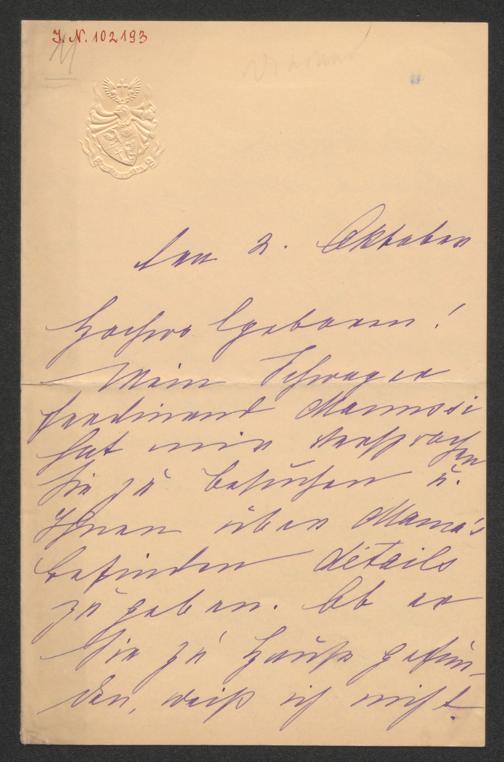 J. N. 102193
den 2. Oktober
Hochwolgeboren!
Mein Schwager
Ferdinand Mannsi
hat mir versprochen
Sie zu besuchen u.
Ihnen über Mama's
Befinden détails
zu geben. Ob er
Sie zu Hause gefun-
den, weiß ich nicht.